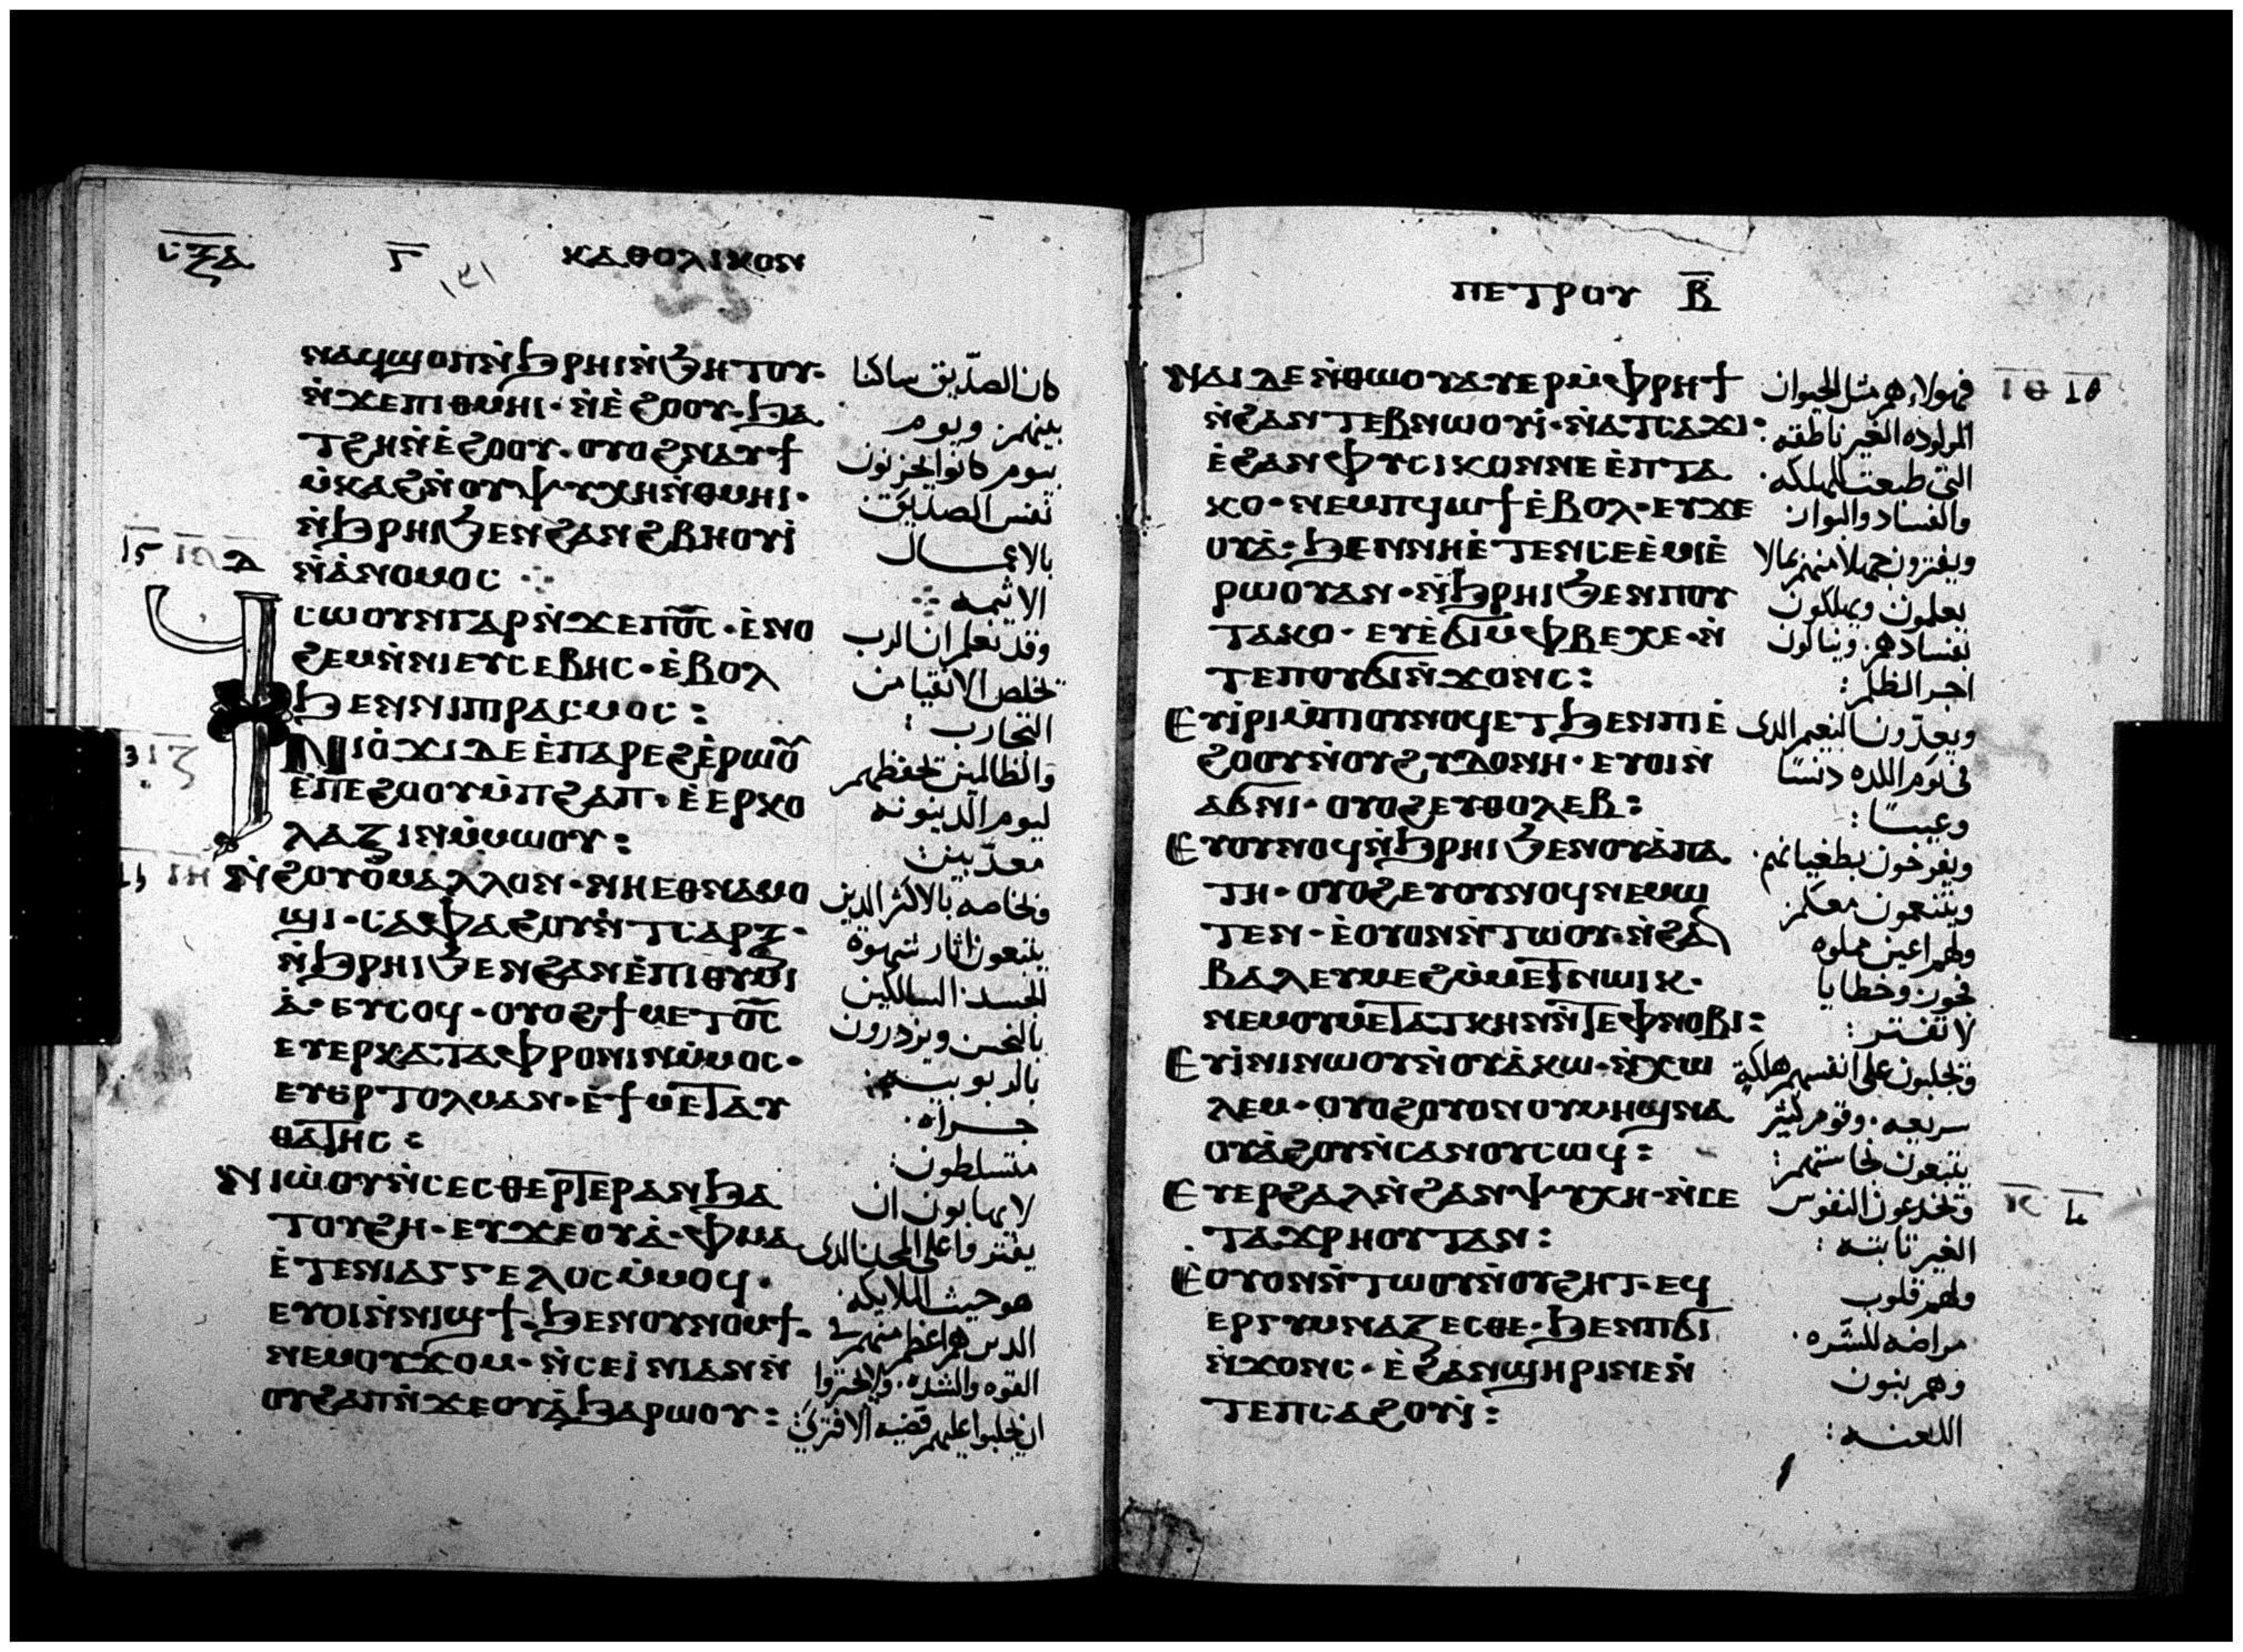 ⲥ̅ⲝ̅ⲁ̅ ⲅ̅ ⲕⲁⲑⲟⲗⲓⲕⲟⲛ
ⲛⲁϥϣⲟⲡⲛ̀ϧⲣⲏⲓⲛ̀ϧⲏⲧⲟⲩ·
ⲛ̀ϫⲉⲡⲓⲑⲙⲏⲓ·ⲛ̀ⲉ̀ϩⲟⲟⲩ·ϧⲁ
ⲧϩⲏⲛ̀ⲉ̀ϩⲟⲟⲩ·ⲟⲩⲟϩⲛⲁⲩϯ
ⲙ̀ⲕⲁϩⲛ̀ⲟⲩⲯⲩⲭⲏⲛ̀ⲑⲙⲏⲓ·
ⲛ̀ϧⲣⲏⲓϧⲉⲛϩⲁⲛϩⲃⲏⲟⲩⲓ̀
ⲛ̀ⲁ̀ⲛⲟⲙⲟⲥ
ϥⲥⲱⲟⲩⲛⲅⲁⲣⲛ̀ϫⲉⲡⲟ̅ⲥ̅·ⲉ̀ⲛⲟ
ϩⲉⲙⲛ̀ⲛⲓⲉⲩⲥⲉⲃⲏⲥ·ⲉ̀ⲃⲟⲗ
ϧⲉⲛⲛⲓⲡⲓⲣⲁⲥⲙⲟⲥ:
ⲛⲓⲟ̀ϫⲓⲇⲉⲉ̀ⲡⲁⲣⲉϩⲉ̀ⲣⲱⲟ̅
ⲉ̀ⲡⲉϩⲟⲟⲩⲙ̀ⲡϩⲁⲡ·ⲉ̀ⲉⲣⲕⲟ
ⲗⲁⲍⲓⲛⲙ̀ⲙⲱⲟⲩ:
ⲛ̀ϩⲟⲩⲟ̀ⲙⲁⲗⲗⲟⲛ·ⲛⲏⲉⲑⲛⲁⲙⲟ
ϣⲓ·ⲥⲁⲫⲁϩⲟⲩⲛ̀ⲧⲥⲁⲣⲝ·
ⲛ̀ϧⲣⲏⲓϧⲉⲛϩⲁⲛⲉ̀ⲡⲓⲑⲩⲙⲓ
ⲁ̀·ⲉⲩⲥⲟϥ·ⲟⲩⲟϩϯⲙⲉⲧⲟ̅ⲥ̅
ⲉⲩⲉⲣⲕⲁⲧⲁⲫⲣⲟⲛⲓⲛⲙ̀ⲙⲟⲥ·
ⲉⲩⲉⲣⲧⲟⲗⲙⲁⲛ·ⲉ̀ϯⲙⲉⲧⲁⲩ
ⲑⲁⲧⲏⲥ:
ⲛⲓⲱ̀ⲟⲩⲛ̀ⲥⲉⲥⲑⲉⲣⲧⲉⲣⲁⲛϧⲁ
ⲧⲟⲩϩⲏ·ⲉⲩϫⲉⲟⲩⲁ̀·ⲫⲙⲁ
ⲉ̀ⲧⲉⲛⲓⲁⲅⲅⲉⲗⲟⲥⲙ̀ⲙⲟϥ·
ⲉⲩⲟⲓⲛ̀ⲛⲓϣϯ·ϧⲉⲛⲟⲩⲛⲟⲙϯ·
ⲛⲉⲙⲟⲩϫⲟⲙ·ⲛ̀ⲥⲉⲓ̀ⲛⲓⲁⲛⲛ̀
ⲟⲩϩⲁⲡⲛ̀ϫⲉⲟⲩⲁ̀ϧⲁⲣⲱⲟⲩ:
كان الصدّيق ساكنا
بينهم. ويوم
بيوم كانوا يحزنون
نفس الصديق
بالاعمال
الاثيمه
وقد نعلم ان الرب
يخلص الاتقيا من
التجارب:
والظالمين تحفظهم
ليوم الدينونه
معذبين:
وبخاصه بالاكثر الذين
يتبعون اثار شهوة
الجسد. السالكين
بالنجس ويزدرون
بالربوبيه.
جراه.
متسلطون:
لا يهابون ان
يفتروا على المجد الذى
هو حيث الملايكه.
الذين هم اعظم منهم فى
القوه والشده.
ان يجلبوا عليهم قضيه الافترى:
ⲡⲉⲧⲣⲟⲩ ⲃ̅
ⲛⲁⲓⲇⲉⲛ̀ⲑⲱⲟⲩⲁⲩⲉⲣⲙ̀ⲫⲣⲏϯ
ⲛ̀ϩⲁⲛⲧⲉⲃⲛⲱⲟⲩⲓ̀·ⲛ̀ⲁⲧⲥⲁϫⲓ:
ⲉ̀ϩⲁⲛⲫⲩⲥⲓⲕⲟⲛⲛⲉⲉ̀ⲡⲧⲁ
ⲕⲟ·ⲛⲉⲙⲡϥⲱϯⲉ̀ⲃⲟⲗ·ⲉⲩϫⲉ
ⲟⲩⲁ̀·ϧⲉⲛⲛⲏⲉ̀ⲧⲉⲛⲥⲉⲉ̀ⲙⲓⲉ̀
ⲣⲱⲟⲩⲁⲛ·ⲛ̀ϧⲣⲏⲓϧⲉⲛⲡⲟⲩ
ⲧⲁⲕⲟ·ⲉⲩⲉ̀ϭⲓⲙ̀ⲫⲃⲉⲭⲉ·ⲛ̀
ⲧⲉⲡⲟⲩϭⲓⲛ̀ϫⲟⲛⲥ:
ⲉⲩⲓ̀ⲣⲓⲙ̀ⲡⲟⲩⲛⲟϥⲉⲧϧⲉⲛⲡⲓⲉ̀
ϩⲟⲟⲩⲛ̀ⲟⲩϩⲩⲇⲟⲛⲏ·ⲉⲩⲟⲓⲛ̀
ⲁϭⲛⲓ·ⲟⲩⲟϩⲉⲩⲑⲟⲗⲉⲃ:
ⲉⲩⲟⲩⲛⲟϥⲛ̀ϧⲣⲏⲓϧⲉⲛⲟⲩⲁ̀ⲡⲁ
ⲧⲏ·ⲟⲩⲟϩⲉⲩⲟⲩⲛⲟϥⲛⲉⲙⲱ
ⲧⲉⲛ·ⲉ̀ⲟⲩⲟⲛⲛ̀ⲧⲱⲟⲩ·ⲛ̀ϩⲁ
ⲃⲁⲗⲉⲩⲙⲉϩⲙ̀ⲙⲉⲧⲛⲱⲓⲕ·
ⲛⲉⲙⲟⲩⲙⲉⲧⲁⲧⲕⲏⲛⲛ̀ⲧⲉⲫⲛⲟⲃⲓ:
ⲉⲩⲓ̀ⲛⲓⲛⲱⲟⲩⲛ̀ⲟⲩⲁ̀ⲕⲱ·ⲛ̀ⲭⲱ
ⲗⲉⲙ·ⲟⲩⲟϩⲟⲩⲟⲛⲟⲩⲙⲏϣⲛⲁ
ⲟⲩⲁ̀ϩⲟⲩⲛ̀ⲥⲁⲛⲟⲩⲥⲱϥ:
ⲉⲩⲉⲣϩⲁⲗⲛ̀ϩⲁⲛⲯⲩⲭⲏ·ⲛ̀ⲥⲉ
ⲧⲁϫⲣⲏⲟⲩⲧⲁⲛ:
ⲉ̀ⲟⲩⲟⲛⲛ̀ⲧⲱⲟⲩⲛ̀ⲟⲩϩⲏⲧ·ⲉϥ
ⲉⲣⲅⲩⲙⲛⲁⲍⲉⲥⲑⲉ·ϧⲉⲛⲡϭⲓ
ⲛ̀ϫⲟⲛⲥ·ⲉ̀ϩⲁⲛϣⲏⲣⲓⲛⲉⲛ̀
ⲧⲉⲡⲥⲁϩⲟⲩⲓ̀:
فهولاء هم مثل الحيوان
المولوده الغير ناطقه:
التى طبعت للهلكه.
والفساد والبوان
ويفترون جهلا منهم بمالا
يعلمون ويهلكون
بفسادهم. وينالون
اجر الظلم:
ويعدّون النعيم الذى
فى يوم اللذه دنسًا
وعيبًا:
ويفرحون بطغيانهم.
ويتنعمون معكم.
ولهم اعين مملوه
فجور وخطايا
لا تفتر:
ويجلبون على انفسهم هلكة
سريعه. وقوم كثير
يتبعون نجاستهم:
ويخدعون النفوس
الغير ثابته:
ولهم قلوب
مراضه للشره.
وهم بنون
اللعنه: